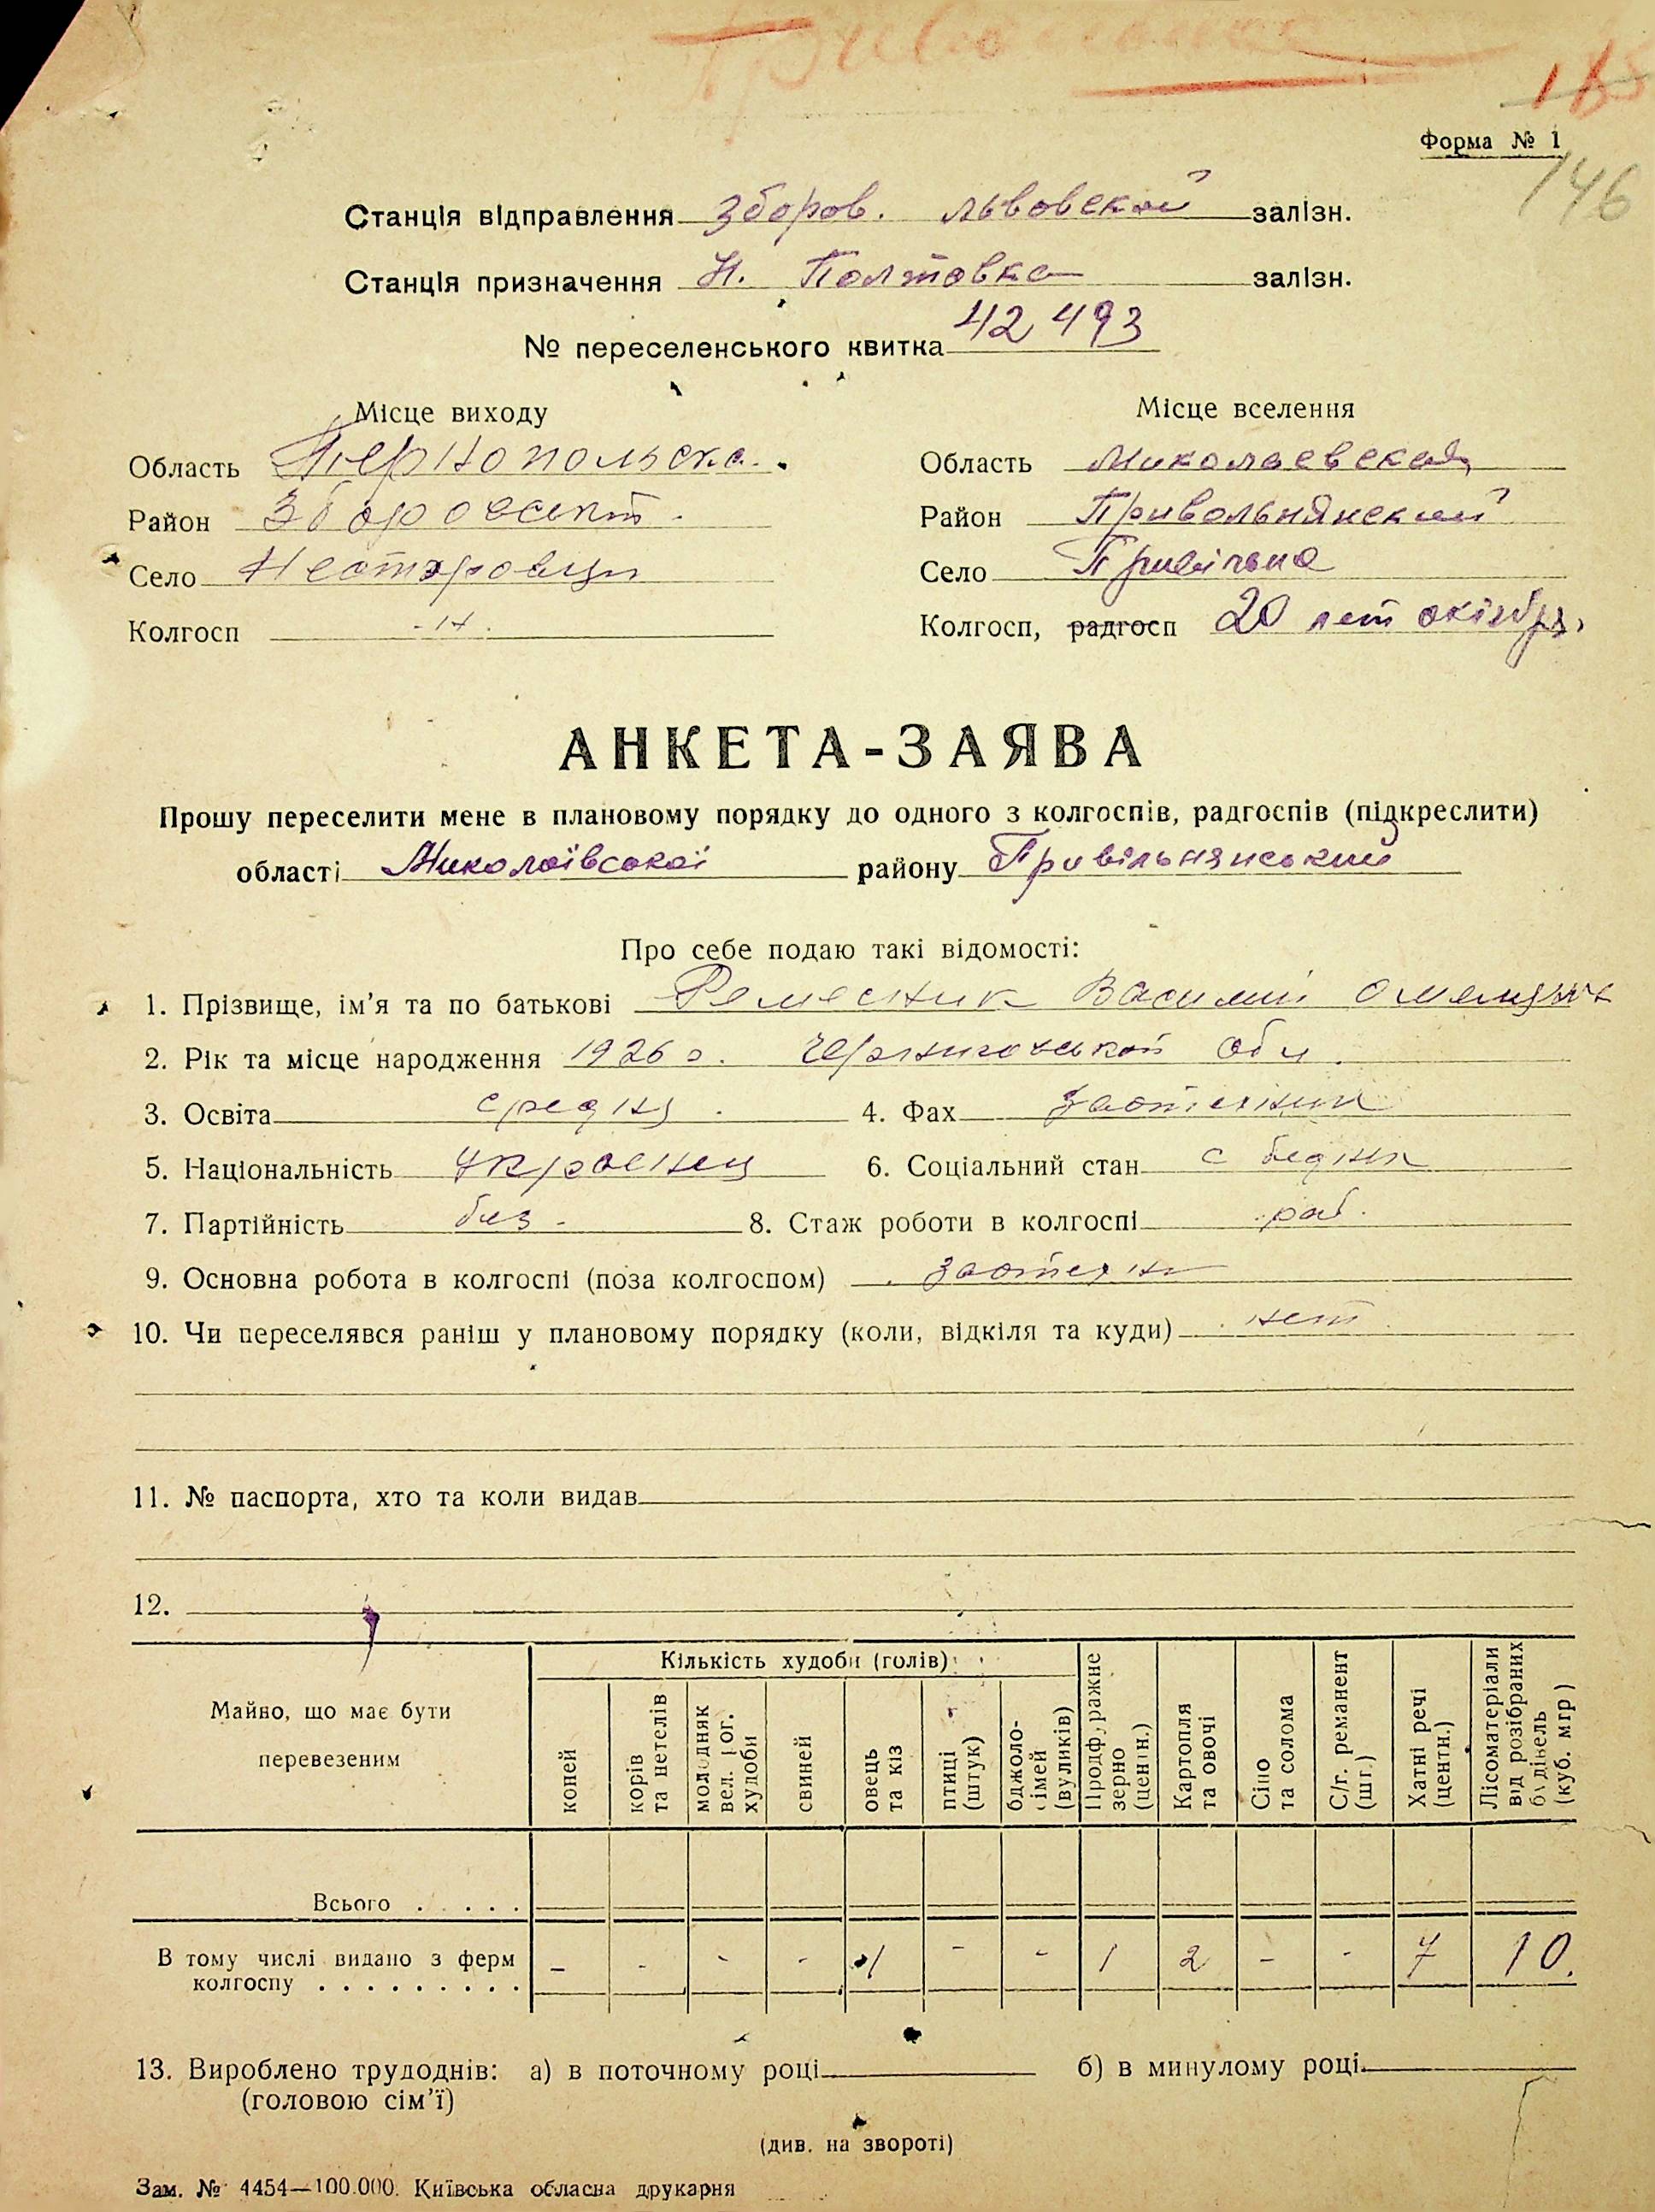 165
Форма № 1
146
Станція відправлення Зборов. Львовской залізн.
Станція призначення Н. Полтовка залізн.
№ переселенського квитка 42493
Місце виходу
Місце вселення
Область Тернопольска.
Область Миколаевская
Район Зборовский.
Район Привольнянский
Село Нестеровци
Село Привільна
Колгосп - н.
Колгосп, радгосп 20 лет октябр.
АНКЕТА-ЗАЯВА
Прошу переселити мене в плановому порядку до одного з колгоспів, радгоспів (підкреслити)
області Миколаївської району Привільнянський
Про себе подаю такі відомості:
1. Прізвище, ім'я та по батькові Ремесник Василий
2. Рік та місце народження 1926 р. Черниговской обл.
3. Освіта средня. 4. Фах зоотехник
5. Національність Украинец 6. Соціальний стан с бедняк
7. Партійність без - 8. Стаж роботи в колгоспі раб.
9. Основна робота в колгоспі (поза колгоспом) зоотехн
10. Чи переселявся раніш у плановому порядку (коли, відкіля та куди) нет
11. № паспорта, хто та коли видав
12.
Майно, що має бути перевезеним
Кількість худоби (голів)
коней
корів та нетелів
молодняк вел. рог. худоби
свиней
овець та кіз
птиці (штук)
бджоло-сімей (вуликів)
Продфуражне зерно (центн.)
Картопля та овочі
Сіно та солома
С/г. реманент (шт.)
Хатні речі (центн.)
Лісоматеріали від розібраних будівель (куб. мтр)
Всього . . . . .
В тому числі видано з ферм
колгоспу . . . . . . . . . - - - - 1 - - 1 2 - - 7 10.
13. Вироблено трудоднів: а) в поточному році б) в минулому році
(головою сім'ї)
(див. на звороті)
Зам. № 4454—100.000. Київська обласна друкарня